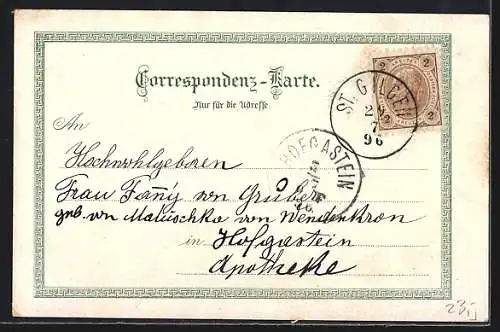 Correspondenz-Karte.
Nur für die Adresse.
2 2
ST. GILGEN
2
7
96
HOFGASTEIN
An
Hochwohlgeboren
Frau Fanny von Gruber
geb. von Maluschka von Wendenkron
in Hofgastein
Apotheke